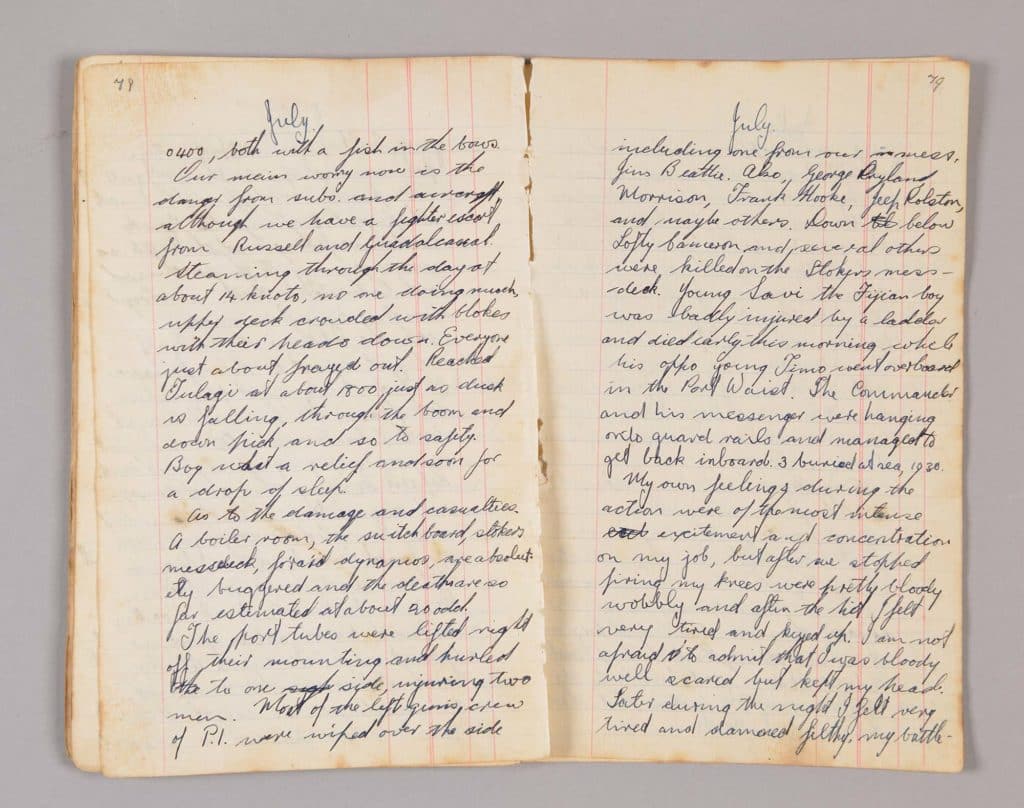 78
July
0400, both with a fish in the bows.
Our main worry now is the
danger from subs. and aircraft
although we have a fighter escort
from Russell and Guadalcanal.
Steaming through the day at
about 14 knots, no one doing much,
upper deck crowded with blokes
with their heads down. Everyone
just about frayed out. Reached
Tulagi at about 1800 just as dusk
is falling, through the boom and
down pick and so to safety.
Boy what a relief and soon for
a drop of sleep.
As to the damage and casualties.
A boiler room, the switchboard, stokers
messdeck, for'ard dynamos, are absolut-
ely buggered and the deaths are so
far estimated at about 20 odd.
The port tubes were lifted right
off their mounting and hurled
to one side, injuring two
men. Most of the left guns, crew
of P.1. were wiped over the side
79
July.
including one from our mess,
Jim Beattie. Also, George Ryland
Morrison, Frank Hooke, Jeep Rolston,
and maybe others. Down below
Lofty Cameron, and several others
were killed on the Stokers mess-
deck. Young Savi the Fijian boy
was badly injured by a ladder
and died early this morning while
his oppo young Timo went overboard
in the Port Waist. The Commander
and his messenger were hanging
onto guard rails and managed to
get back inboard. 3 buried at sea, 1930.
My own feelings during the
action were of the most intense
excitement and concentration
on my job, but after we stopped
firing my knees were pretty bloody
wobbly and after the hit I felt
very tired and keyed up. I am not
afraid to admit that I was bloody
well scared but kept my head.
Later during the night I felt very
tired and damned filthy, my battle-